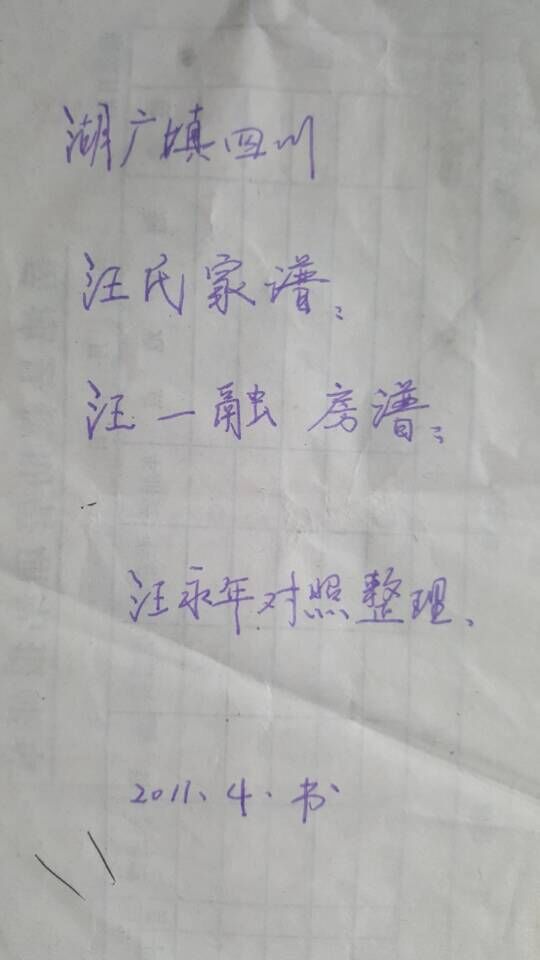 湖广填四川
汪氏家谱、
汪一融 房谱、
汪永年对照整理、
2011、4、书